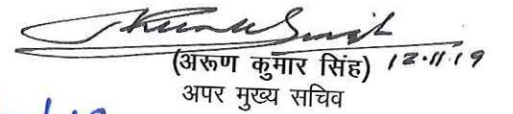 (अरूण कुमार सिंह) 12.11.19
अपर मुख्य सचिव